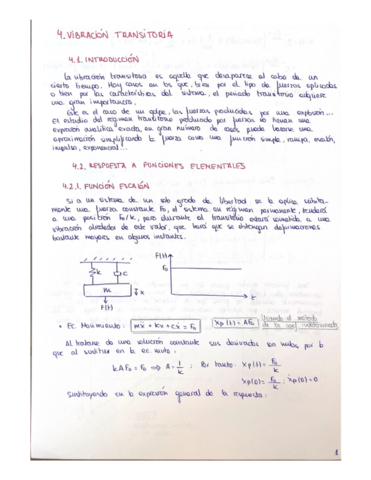 4. VIBRACIÓN TRANSITORIA
4.1. INTRODUCCIÓN
La vibración transitoria es aquella que desaparece al cabo de un
cierto tiempo. Hay casos en los que, bien por el tipo de fuerzas aplicadas
o bien por las características del sistema, el periodo transitorio adquiere
una gran importancia.
Este es el caso de un golpe, las fuerzas producidas por una explosión...
El estudio del régimen transitorio producido por fuerzas no tienen una
expresión analítica exacta, en gran número de casos, puede hacerse una
aproximación simplificando la fuerza como una función simple, rampa, escalón,
impulso, exponencial...
4.2. RESPUESTA A FUNCIONES ELEMENTALES
4.2.1. FUNCIÓN ESCALÓN
Si a un sistema de un solo grado de libertad se le aplica súbita-
mente una fuerza constante F0, el sistema en régimen permanente, tenderá
a una posición F0/k, pero durante el transitorio estará sometido a una
vibración alrededor de este valor, que hará que se obtengan deformaciones
bastante mayores en algunos instantes.
F(t)
F0
k
c
m
x
F(t)
t
• Ec. Movimiento: mẍ + kx + cẋ = F0
Xp(t) = AF0
Usando el método
de la coef. indeterminados
Al tratarse de una solución constante sus derivadas son nulas por lo
que al sustituir en la ec. mvto:
kAF0 = F0 ⇒ A = 1/k ; Por tanto: Xp(t) = F0/k
Xp(0) = F0/k ; ẋp(0) = 0
Sustituyendo en la expresión general de la respuesta:
1